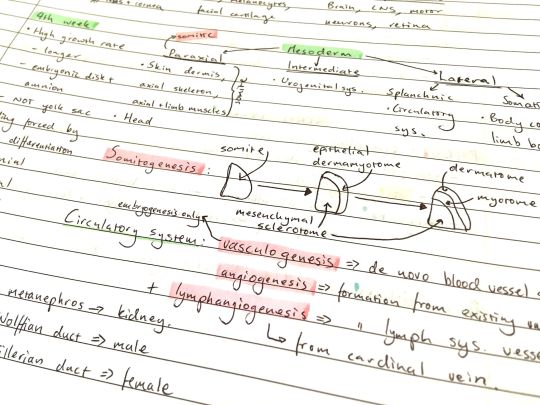 cornea
facial cartilage
Brain, CNS, motor
neurons, retina
4th week
• High growth rate
- longer
- embryonic disk +
amnion
- NOT yolk sac
forced by
differentiation
somitic
Mesoderm
Paraxial
• Skin dermis,
axial skeleton,
axial + limb muscles
• Head
Intermediate
• Urogenital sys.
Lateral
Splanchnic
• Circulatory
sys.
• Body
limb
Somitogenesis:
somite
epithelial
dermamyotome
dermatome
myotome
mesenchymal
sclerotome
embryogenesis only
Circulatory system: vasculogenesis => de novo blood vessel
angiogenesis => formation from existing
+ lymphangiogenesis => " lymph sys.
from cardinal vein.
metanephros -> kidney.
Wolffian duct => male
duct => female